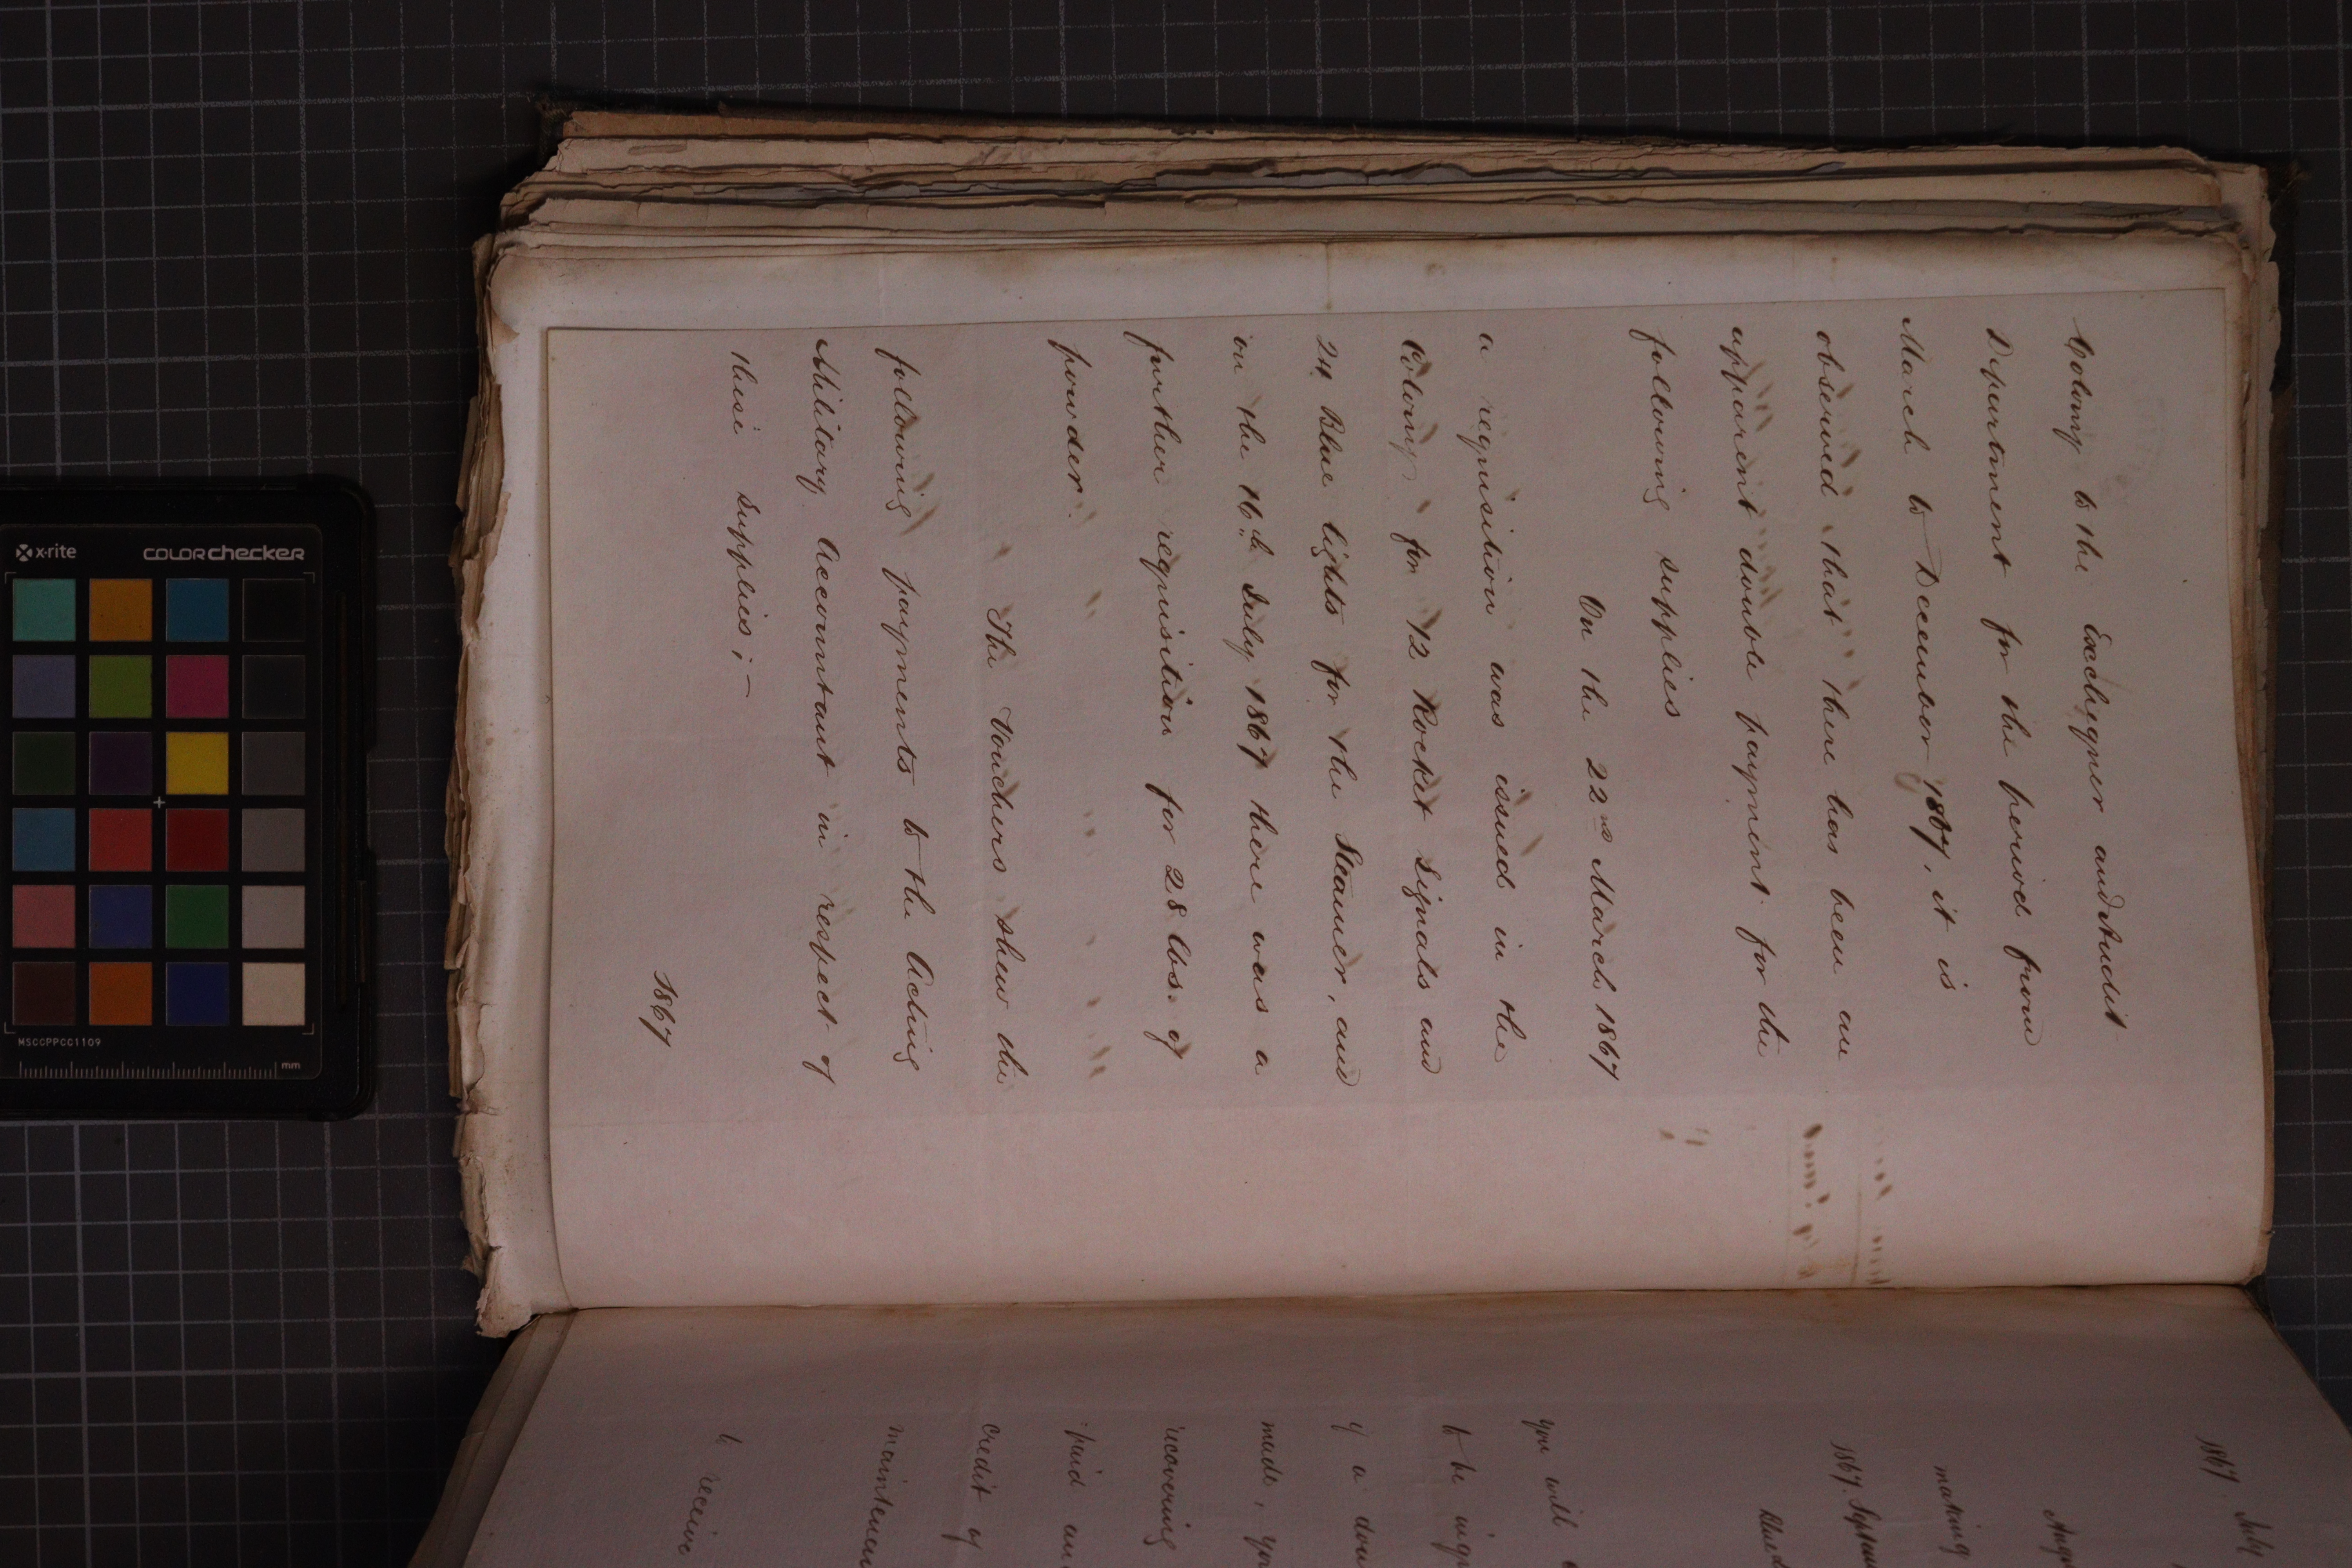 Colony to the Exchequer and Audit
Department for the period from
March to December 1867, it is
observed that there has been an
apparent double payment for the
following supplies
On the 22nd March 1867
a requisition was issued in the
Colony for 12 Rocket Signals and
24 Blue lights for the Steamer, and
on the 16th July 1867 there was a
further requisition for 28 lbs. of
powder.
The Vouchers shew the
following payments to the Acting
Military Accountant in respect of
these supplies; –
1867
1867 July
making
1867. Septem
you will
to be
of a dou
made, yo
recovering
paid an
credit of
maintenan
receive
x-rite
colorchecker
MSCCPPCC1109
mm